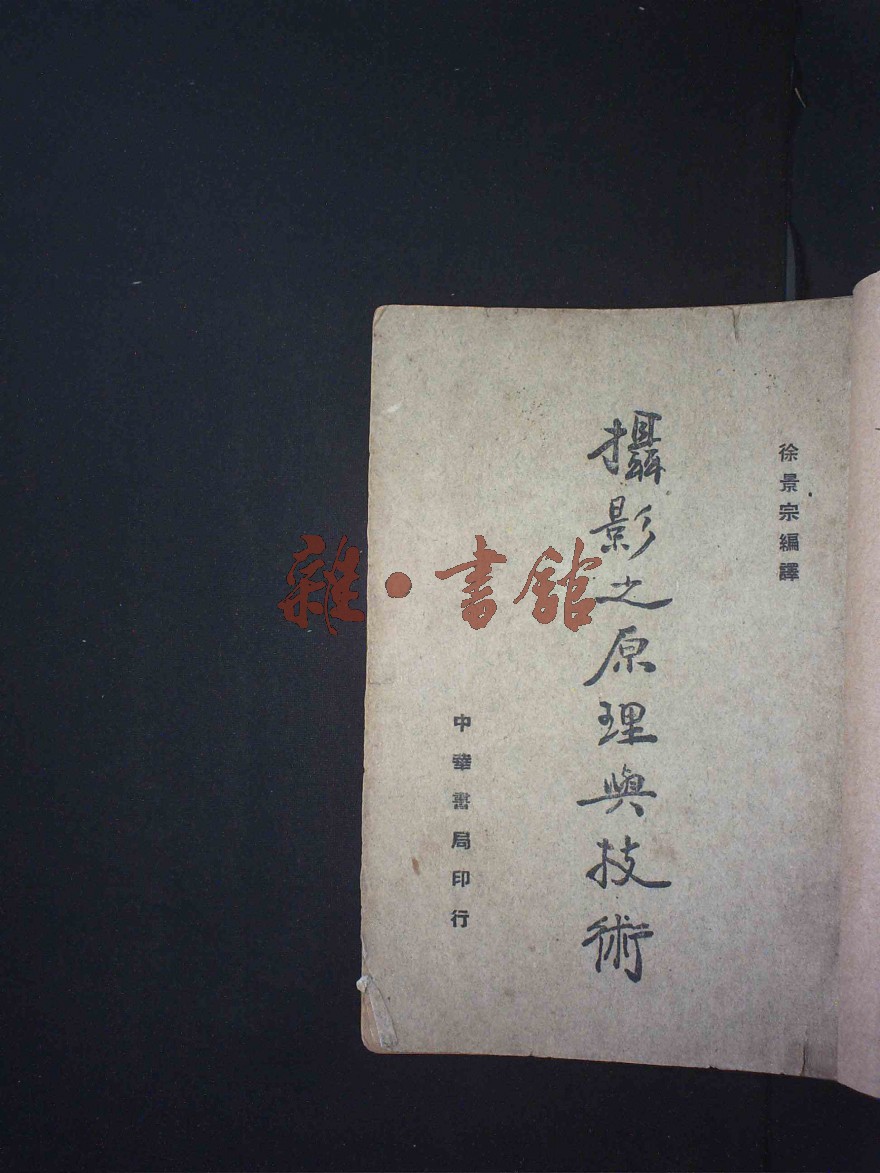 徐景宗編譯
攝影之原理與技術
中華書局印行
雜·書館